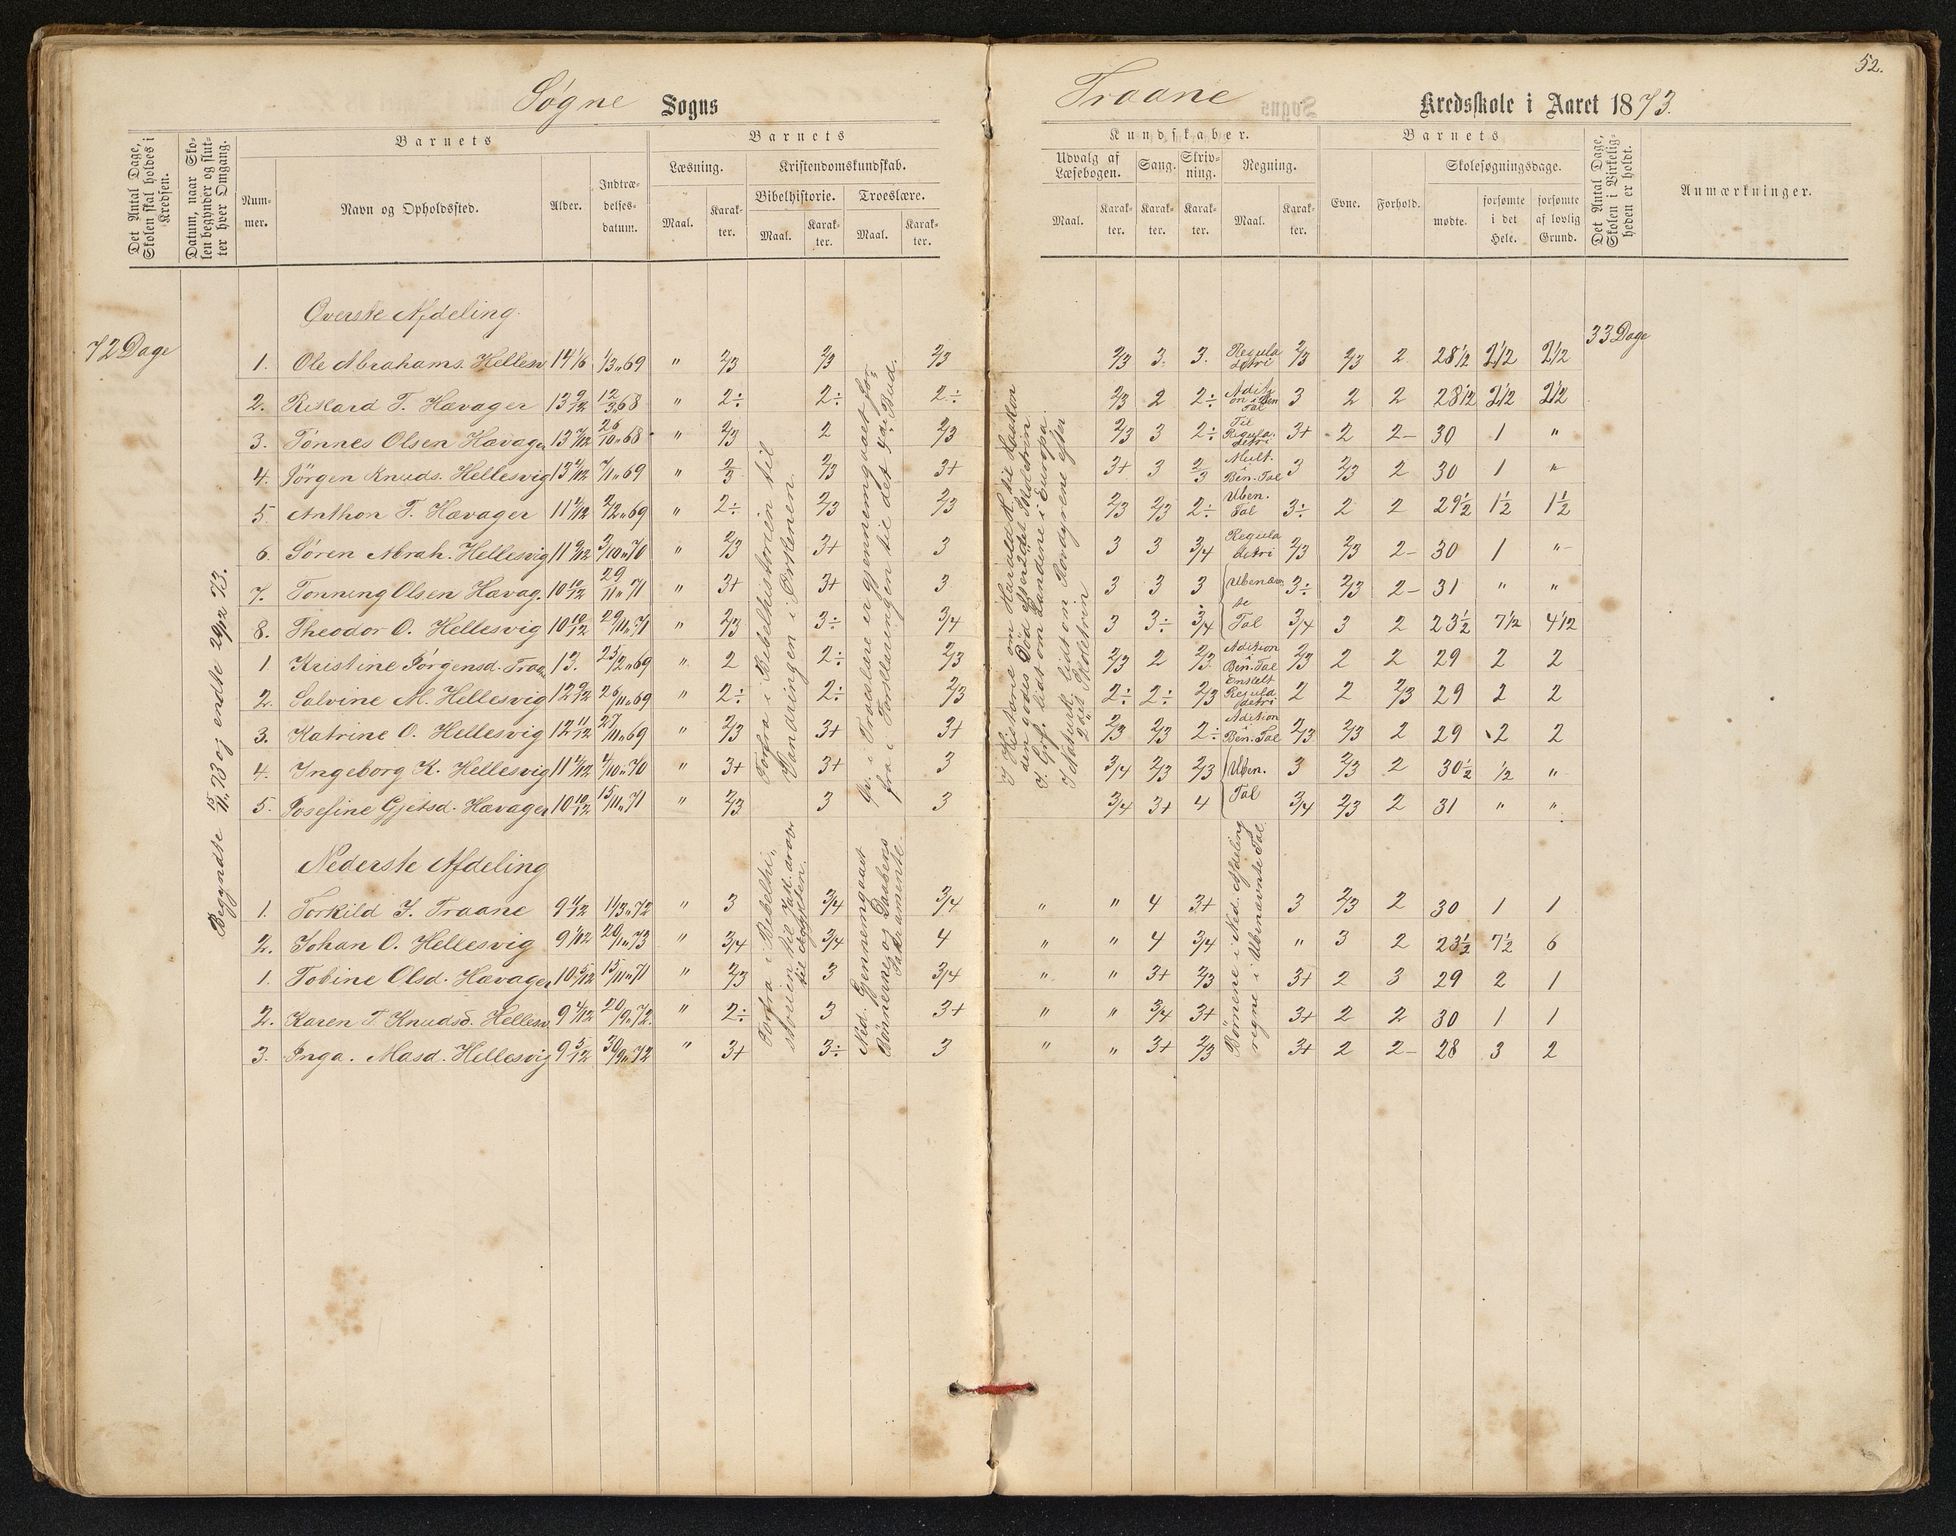 52.
Søgne Sogns Traane Kredsskole i Aaret 1873.
Det Antal Dage, Skolen skal holdes i Kredsen.
Datum, naar Skolen begynder og slutter hver Omgang.
Barnets
Nummer.
Navn og Opholdssted.
Alder.
Indtrædelsesdatum.
Barnets
Læsning.
Maal. Karakter.
Kristendomskundskab.
Bibelhistorie. Troeslære.
Maal. Karakter. Maal. Karakter.
Kundskaber.
Udvalg af Læsebogen. Sang. Skrivning. Regning.
Maal. Karakter. Karakter. Karakter. Maal. Karakter.
Barnets
Evne. Forhold.
Skolesøgningsdage.
mødte. forsømte i det Hele. forsømte af lovlig Grund.
Det Antal Dage, Skolen i Virkeligheden er holdt.
Anmærkninger.
72 Dage
33 Dage
Begyndte 15/11 73 og endte 29/12 73.
Øverste Afdeling.
1. Ole Abrahams. Hellesv 14 1/6 1/3 " 69 " 2/3 2/3 2/3 2/3 3. 3. Regula detri 2/3 2/3 2 28 1/2 2 1/2 2 1/2
2. Rikard T. Hævager 13 9/12 12/3 " 68 " 2÷ 2÷ 2÷ 2/3 2 2÷ Adition i Ben Tal 3 2 2 28 1/2 2 1/2 2 1/2
3. Tønnes Olsen Hævager 26/10 " 68 " 2/3 2 2/3 2/3 3 2÷ Til Regula detri 3+ 2 2– 30 1 "
4. Jørgen Knuds. Hellesvig 7/11 " 69 " 2/3 2/3 3+ 3+ 3 2/3 Mult. i Ben. Tal 3 2/3 2 30 1 "
5. Anthon T. Hævager 2/12 " 69 " 2÷ 2/3 2/3 2/3 2/3 2÷ Uben. Tal 3÷ 2 2 29 1/2 1 1/2 1 1/2
6. Søren Abrah. Hellesvig 11 9/12 3/10 " 70 " 2/3 3+ 3 3 3 3/4 Regula detri 2/3 2/3 2– 30 1 "
7. Tonning Olsen Hævag. 10 10/12 29/11 " 71 " 3+ 3+ 3 3 3 3 Ubenævn 3÷ 2/3 2– 31 " "
8. Theodor O. Hellesvig 10 10/12 29/11 " 71 " 2/3 3÷ 3/4 3 3÷ 3/4 te Tal 3/4 3 2 23 1/2 7 1/2 4 1/2
1 Kristine Jørgensd. Traan 13. 25/2 " 69 " 2 2÷ 2/3 2/3 2 2/3 Adition i Ben. Tal 2/3 2 2 29 2 2
2. Salvine M. Hellesvig 12 9/12 26/11 " 69 " 2÷ 2÷ 2/3 2÷ 2÷ 2/3 Enkelt Regula detri 2 2 2/3 29 2 2
3. Katrine O. Hellesvig 12 11/12 27/11 " 69 " 2/3 3+ 3+ 2/3 2/3 2÷ Adition i Ben. Tal 2/3 2/3 2 29 2 2
4. Ingeborg K. Hellesvig 4/10 " 70 " 3+ 3+ 3 3/4 2/3 2/3 Uben. 3 2/3 2 30 1/2 1/2 "
5. Josefine Gjetsd. Hævager 10 10/12 15/11 " 71 " 2/3 3 3 3/4 3+ 4 Tal 3/4 2/3 2 31 " "
Forfra i Bibelhistorien til Vandringen i Ørkenen.
Øv. i Troeslære en gjennemgaaet forfra i Forklaringen til det Bud.
I Historie om Harald H. til Haakon den godes Død efter 2det Skoletrin.
I Grf. lidt om Landene i Europa.
I Naturk. lidt om Rovdyrene efter 2det Skoletrin
Nederste Afdeling
1. Torkild J. Traane 1/3 " 72 " 3 3/4 3/4 " " 4 3+ 3 2/3 2 30 1 1
2. Johan O. Hellesvig 9 1/12 20/1 " 73 " 3/4 3/4 4 " " 4 3/4 " 3 2 23 1/2 7 1/2 6
1. Tobine Olsd. Hævager 10 5/12 15/11 " 71 " 2/3 3 3/4 " " 3+ 2/3 3+ 2 3 29 2 1
2. Karen T. Knudsd. Hellesv 20/9 " 72. " 2÷ 3 3+ " " 3/4 3+ 3+ 2 2 30 1 1
3. Inga. Masd. Hellesvig 9 5/12 30/9 " 72 " 3+ 3÷ 3 " " 3+ 2/3 3+ 2 2– 28 3 2
Forfra i Bibelhistorien til
Ned. Gjennemgaaet Bønnerne og Daabens Sakramente
Børnene i Ned. Afdeling regne i Ubenævnte Tal